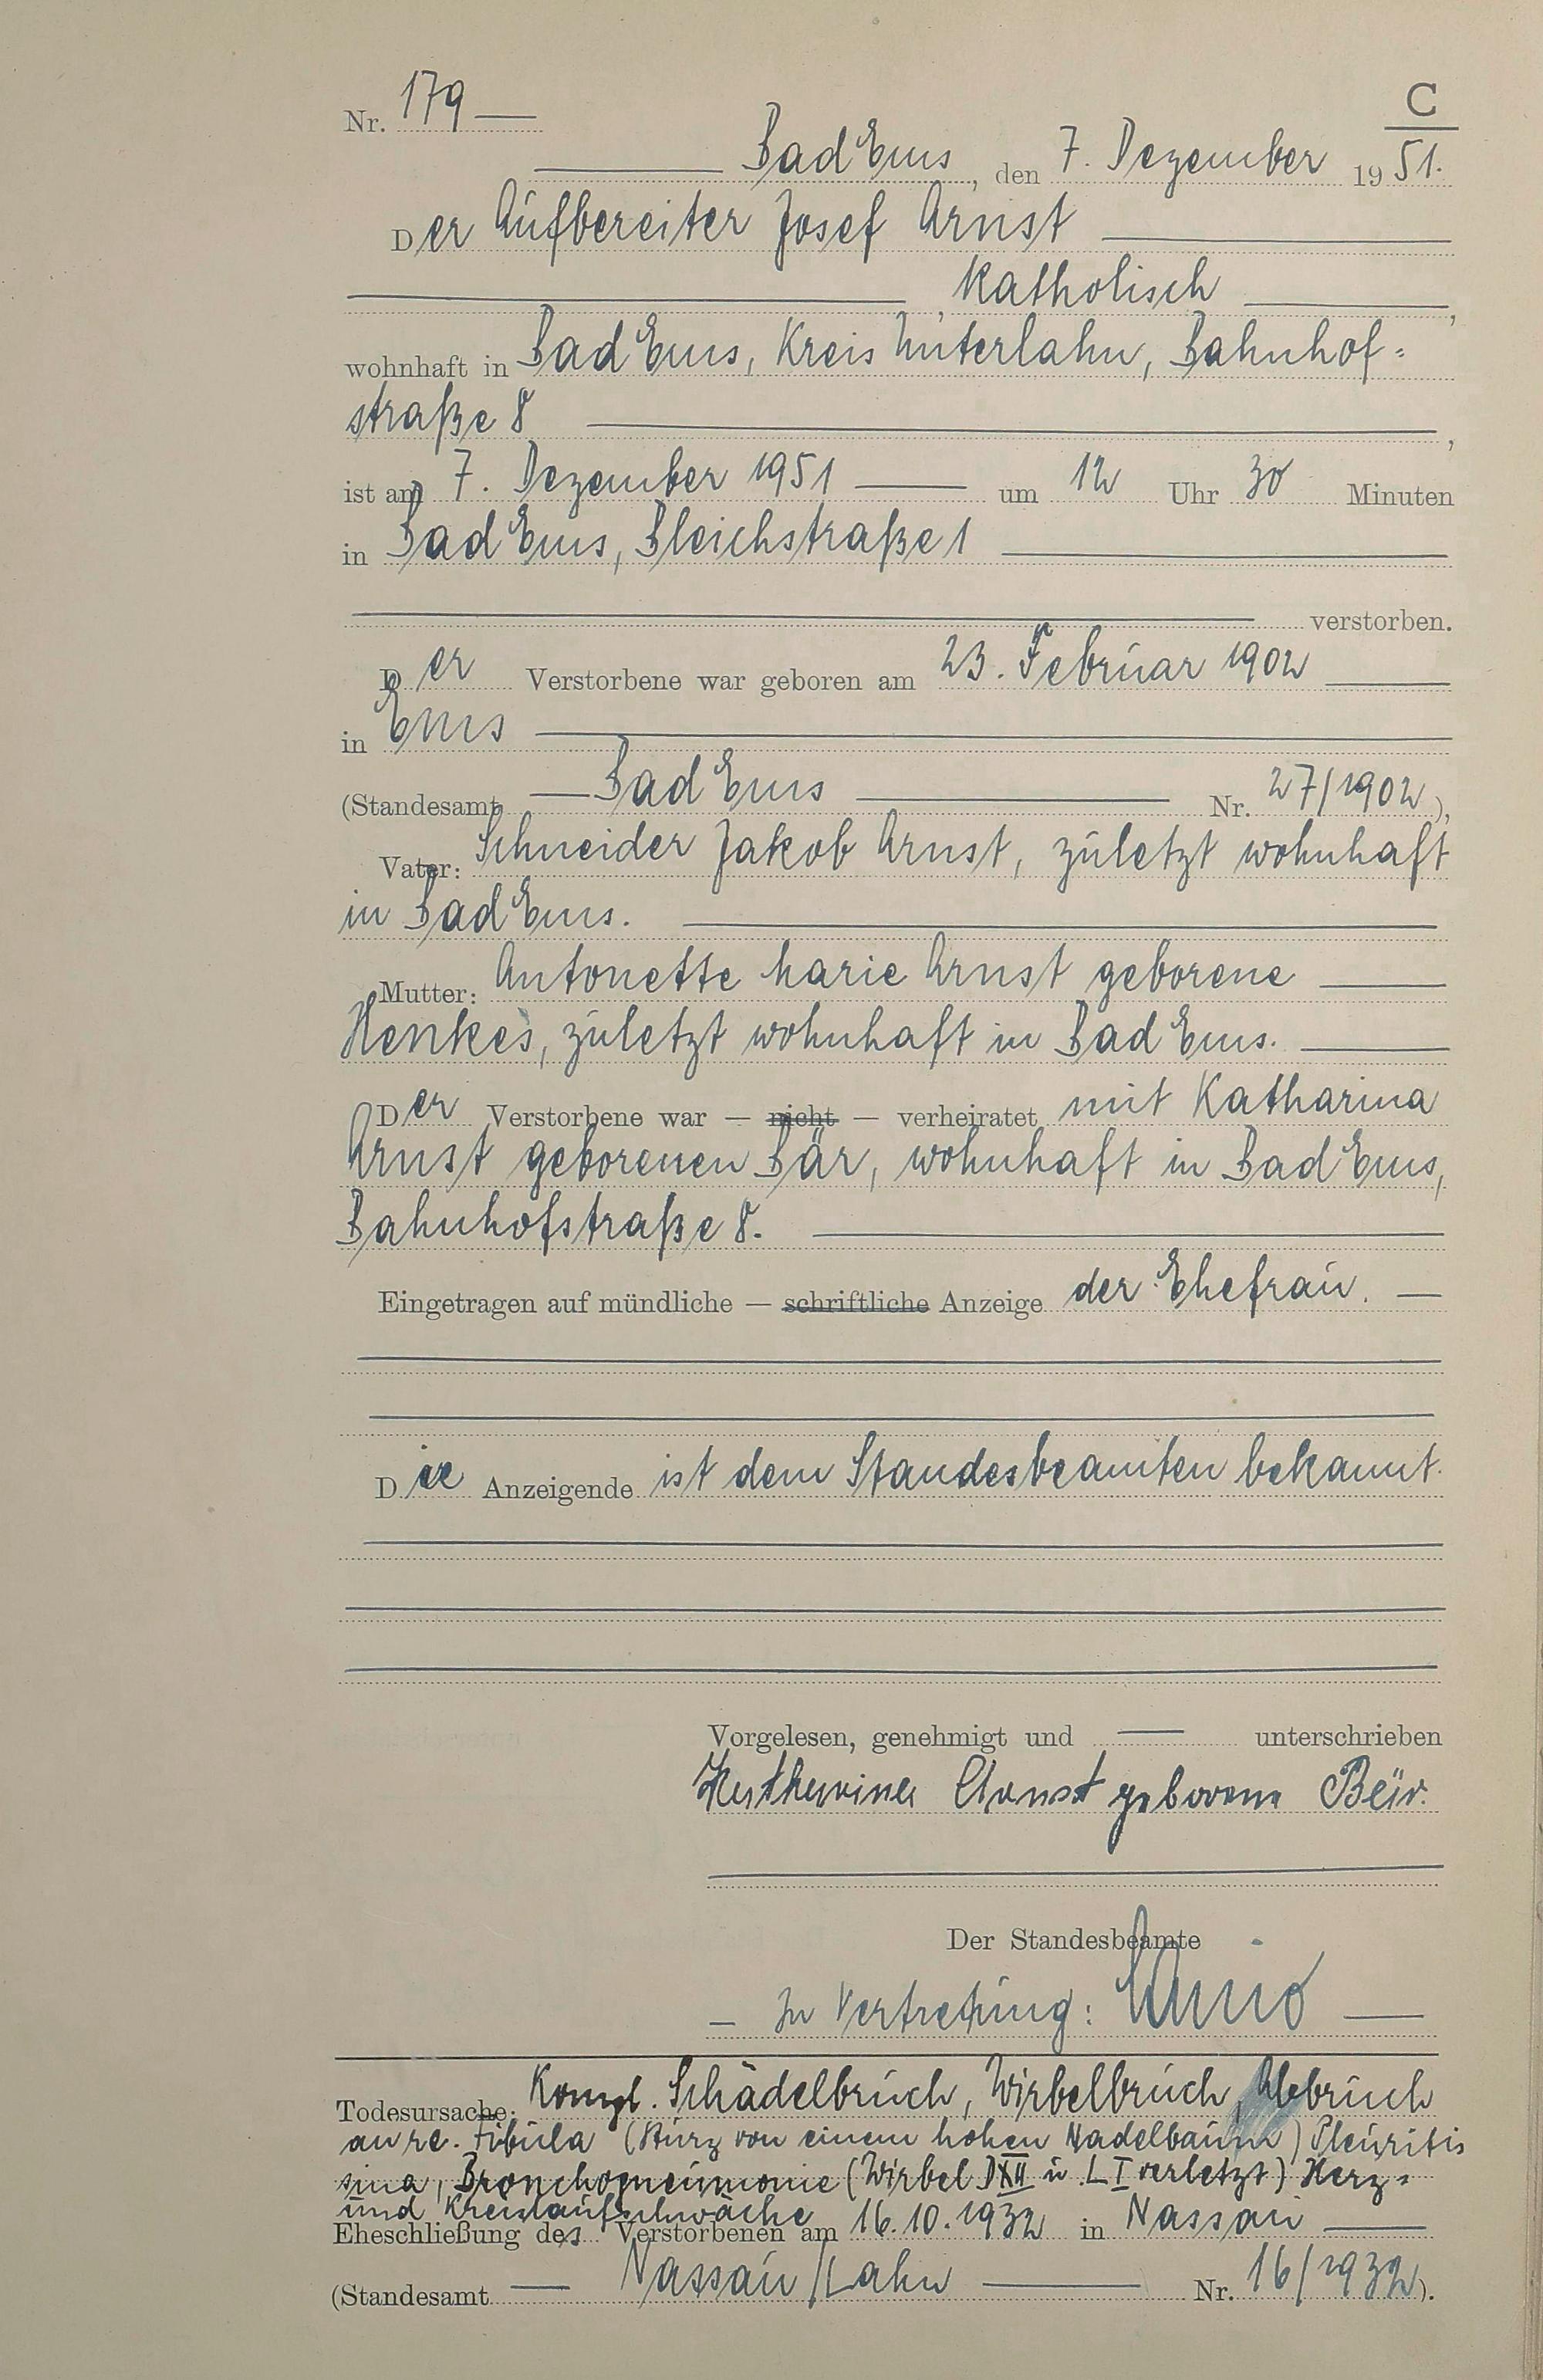 Nr. 179 —
C
Bad Ems, den 7. Dezember 1951.
Der Aufbereiter Josef Arnst
, katholisch ,
wohnhaft in Bad Ems, Kreis Unterlahn, Bahnhof=
straße 8 ,
ist am 7. Dezember 1951 — um 12 Uhr 30 Minuten
in Bad Ems, Bleichstraße 1
verstorben.
Der Verstorbene war geboren am 23. Februar 1902
in Ems
(Standesamt — Bad Ems — Nr. 27/1902),
Vater: Schneider Jakob Arnst, zuletzt wohnhaft
in Bad Ems.
Mutter: Antonette Marie Arnst geborene
Henkes, zuletzt wohnhaft in Bad Ems.
Der Verstorbene war — nicht — verheiratet mit Katharina
Arnst geborenen Bär, wohnhaft in Bad Ems,
Bahnhofstraße 8.
Eingetragen auf mündliche — schriftliche Anzeige der Ehefrau. —
Die Anzeigende ist dem Standesbeamten bekannt.
Vorgelesen, genehmigt und — unterschrieben
Katharina Arnst geborene Bär.
Der Standesbeamte
— In Vertretung: —
Todesursache: Kompl. Schädelbruch, Wirbelbruch, Abbruch
an re. Fibula (Sturz von einem hohen Nadelbaum) Pleuritis
sina, Bronchopneumonie (Wirbel D XII u L I verletzt) Herz=
und Kreislaufschwäche
Eheschließung des Verstorbenen am 16.10.1932 in Nassau —
(Standesamt — Nassau/Lahn — Nr. 16/1932).